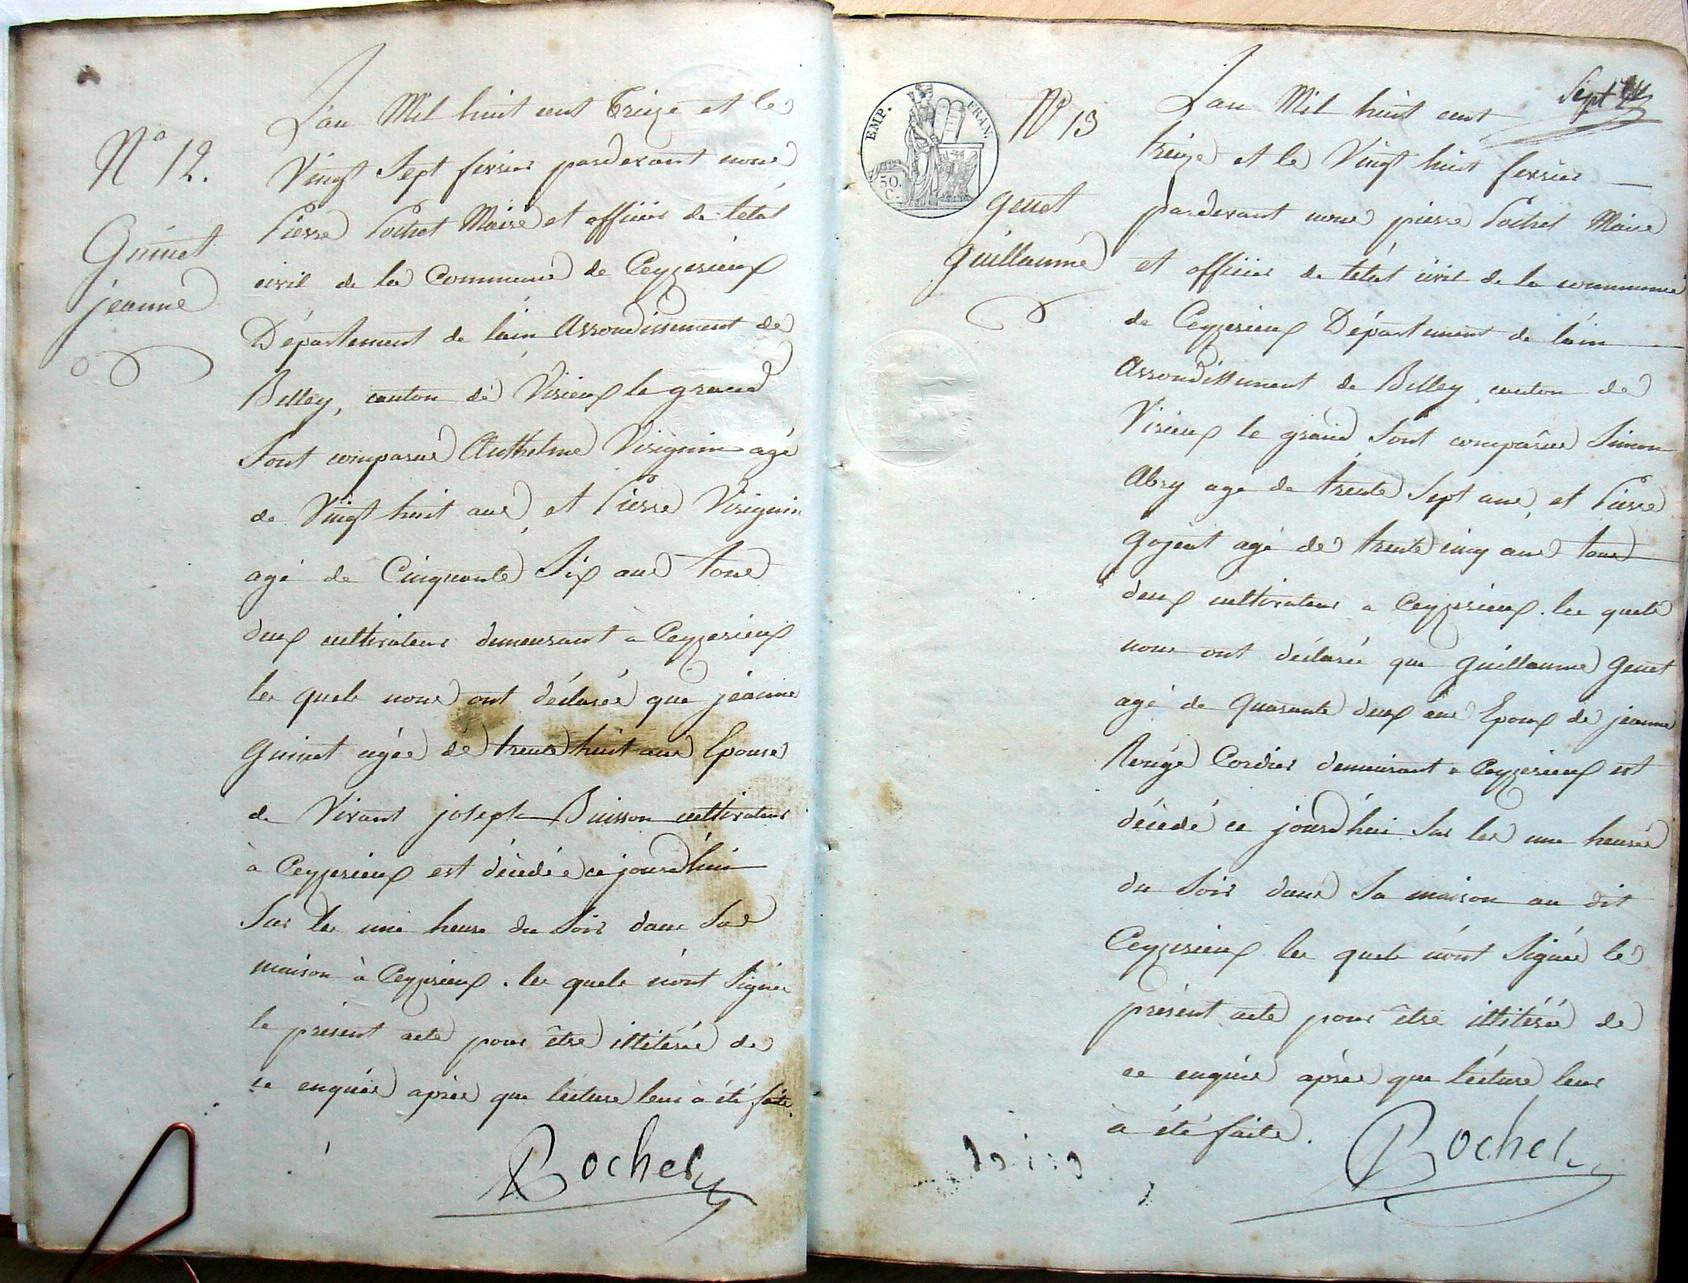 N° 12.
Guinet
jeanne
L'an Mil huit cent Treize et le
Vingt Sept fevrier pardevant nous
Pierre Pochet Maire et officier de l'état
civil de la Commune de Ceyzerieux
Département de l'ain Arrondissement de
Belley, canton de Virieux le grand
Sont comparus Anthelme Virignin agé
de Vingt huit ans, et Pierre Virignin
agé de Cinquante Six ans tous
deux cultivateurs demeurant a Ceyzerieux
les quels nous ont déclarés que jeanne
Guinet agée de trente huit ans Epouse
de Vivant joseph Buisson cultivateur
à Ceyzerieux est décédée ce jourd'hui
Sur les une heure du Soir dans Sa
maison à Ceyzerieux. les quels n'ont Signés
le présent acte pour être illitérés de
ce enquis après que lecture leur à été faite.
Bochet
EMP. FRAN.
50.
C.
N° 13
genet
guillaume
Sept
L'an Mil huit cent
treize et le Vingt huit fevrier
pardevant nous pierre Pochet Maire
et officier de l'état civil de la commune
de Ceyzerieux Département de l'ain
Arrondissement de Belley, canton de
Virieux le grand, Sont comparus Simon
Abry age de trente Sept ans, et Pierre
gojeat agé de trente cinq ans tous
deux cultivateurs a Ceyzerieux. les quels
nous ont déclarés que guillaume genet
agé de quarante deux ans Epoux de jeanne
Rougé Cordier demeurant a Ceyzerieux est
décédé ce jourd'hui Sur les une heures
du Soir dans Sa maison au dit
Ceyzerieux les quels n'ont Signés le
présent acte pour être illitérés de
ce enquis après que lecture leur
à été faite.
Bochet